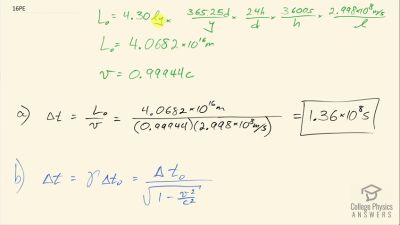 16PE
L₀ = 4.30 ly × 365.25d/y × 24h/d × 3600s/h × 2.998×10⁸ m/s/l
L₀ = 4.0682×10¹⁶ m
v = 0.99944c
a) Δt = L₀/v = 4.0682×10¹⁶ m/(0.99944)(2.998×10⁸ m/s) = 1.36×10⁸ s
b) Δt = γ Δt₀ = Δt₀/√(1 − v²/c²)
College Physics
ANSWERS